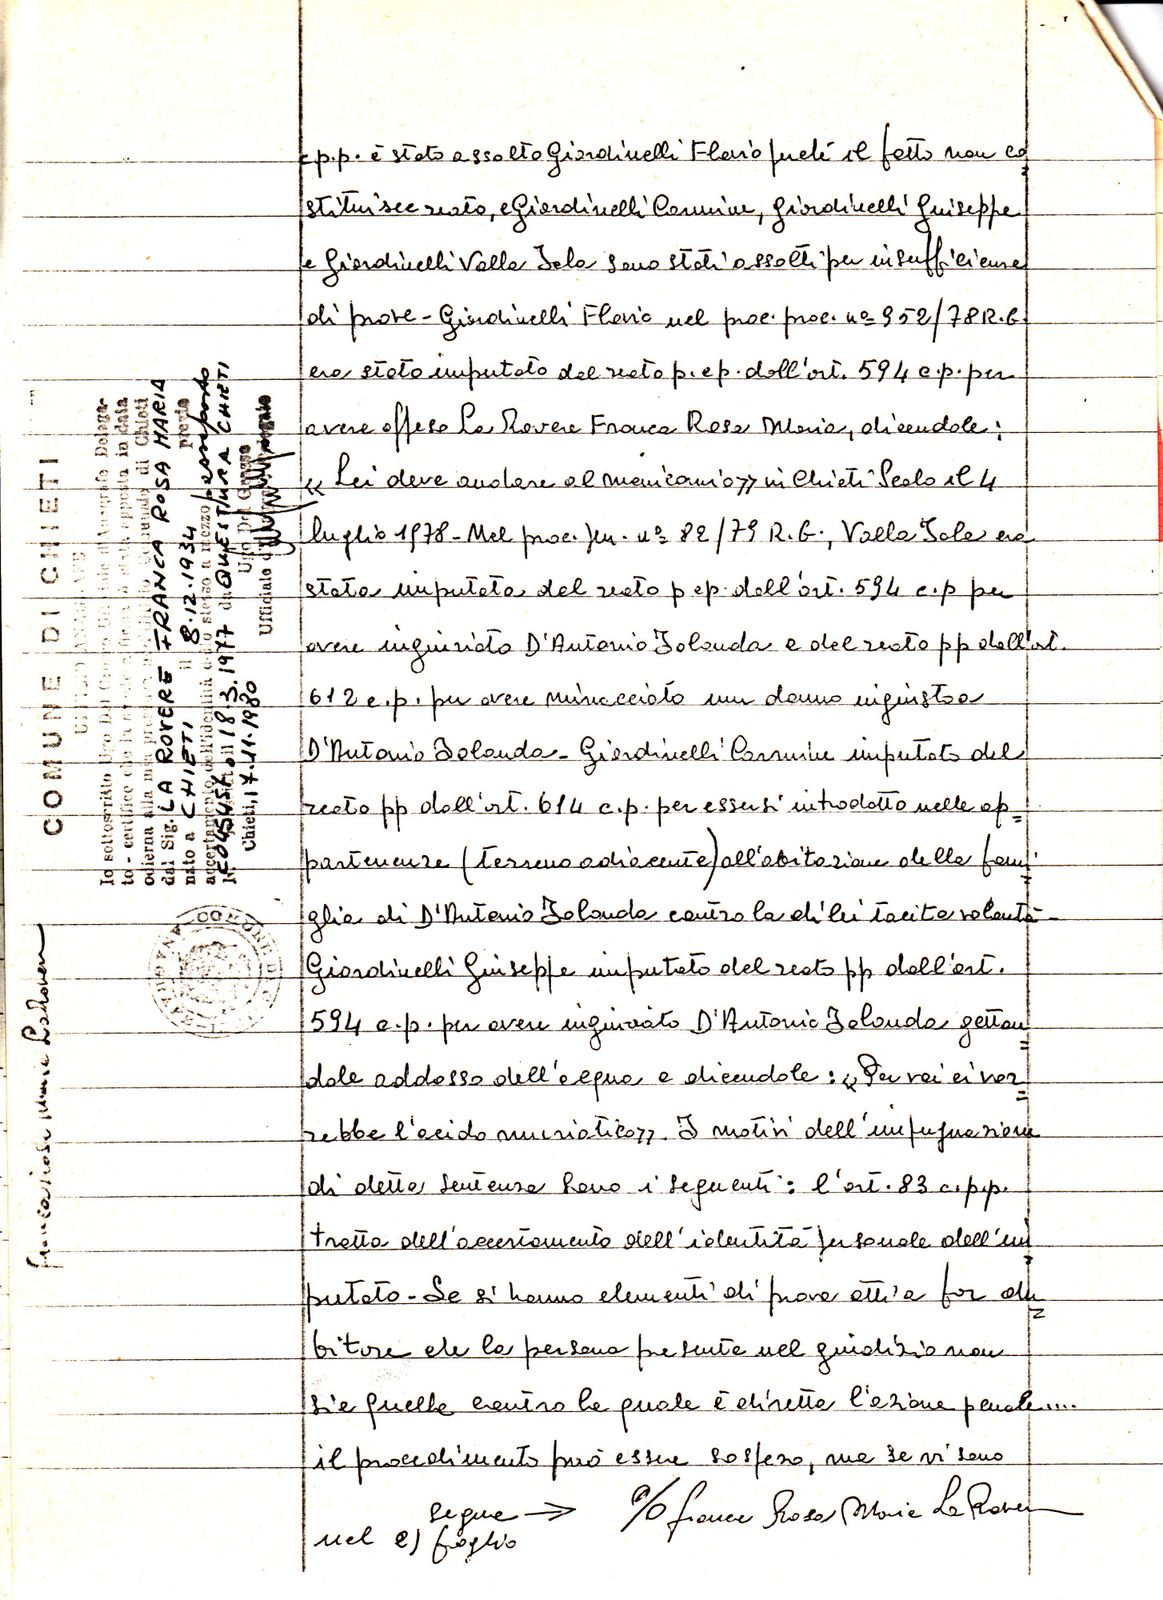 c.p.p. è stato assolto Giardinelli Flavio perché il fatto non co=
stituisce reato, e Giardinelli Carmine, Giardinelli Giuseppe
e Giardinelli Valla Iola sono stati assolti per insufficienza
di prove - Giardinelli Flavio nel proc. proc. nº 952/78 R.G.
era stato imputato del reato p. e p. dall'art. 594 c.p. per
avere offeso La Rovere Franca Rosa Maria, dicendole:
« Lei deve andare al manicomio » in Chieti Scalo il 4
luglio 1978 - Nel proc. pen. nº 82/79 R.G., Valla Iola era
stata imputata del reato p e p. dall'art. 594 c.p per
avere ingiuriato D'Antonio Iolanda e del reato pp dall'art.
612 c.p. per avere minacciato un danno ingiusto a
D'Antonio Iolanda - Giardinelli Carmine imputato del
reato pp dall'art. 614 c.p. per essersi introdotto nelle ap=
partenenze (terreno adiacente) all'abitazione della fami=
glia di D'Antonio Iolanda contro la di lei tacita volontà -
Giardinelli Giuseppe imputato del reato pp dall'art.
594 c.p. per avere ingiuriato D'Antonio Iolanda gettan=
dole addosso dell'acqua e dicendole: « Per voi ci vor=
rebbe l'acido muriatico ». I motivi dell'impugnazione
di detta sentenza sono i seguenti: l'art. 83 c.p.p.
tratta dell'accertamento dell'identità personale dell'im
putato - Se si hanno elementi di prova atti a far du=
bitare che la persona presente nel giudizio non
sia quella contro la quale è diretta l'azione penale....
il procedimento può essere sospeso, ma se vi sono
segue →
nel 2) foglio
Franca Rosa Maria La Rovere
COMUNE DI CHIETI
Io sottoscritto Ugo Del Grosso
to - certifico che la
odierna alla mia presenza
dal Sig. LA ROVERE FRANCA ROSA MARIA
nato a CHIETI il 8.12.1934 previo
accertamento dell'identità dello stesso a mezzo passaporto
18.3.1977 da QUESTURA CHIETI
Chieti, 17.11.1980
Ugo Del Grosso
Franca Rosa Maria La Rovere